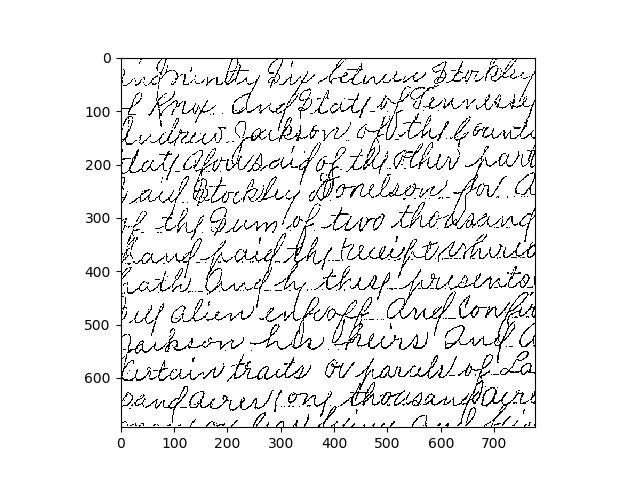 and Ninety Six between Stockley
of Knox and State of Tennessee
Andrew Jackson of the Count
tate aforesaid of the other part
said Stockley Donelson for a
of the Sum of two thousand
hand paid the receipt
hath and by these presents
alien enfeoff and Confir
Jackson his heirs and a
Certain traits or parcels of La
sand acres one thousand acre
0
100
200
300
400
500
600
0 100 200 300 400 500 600 700